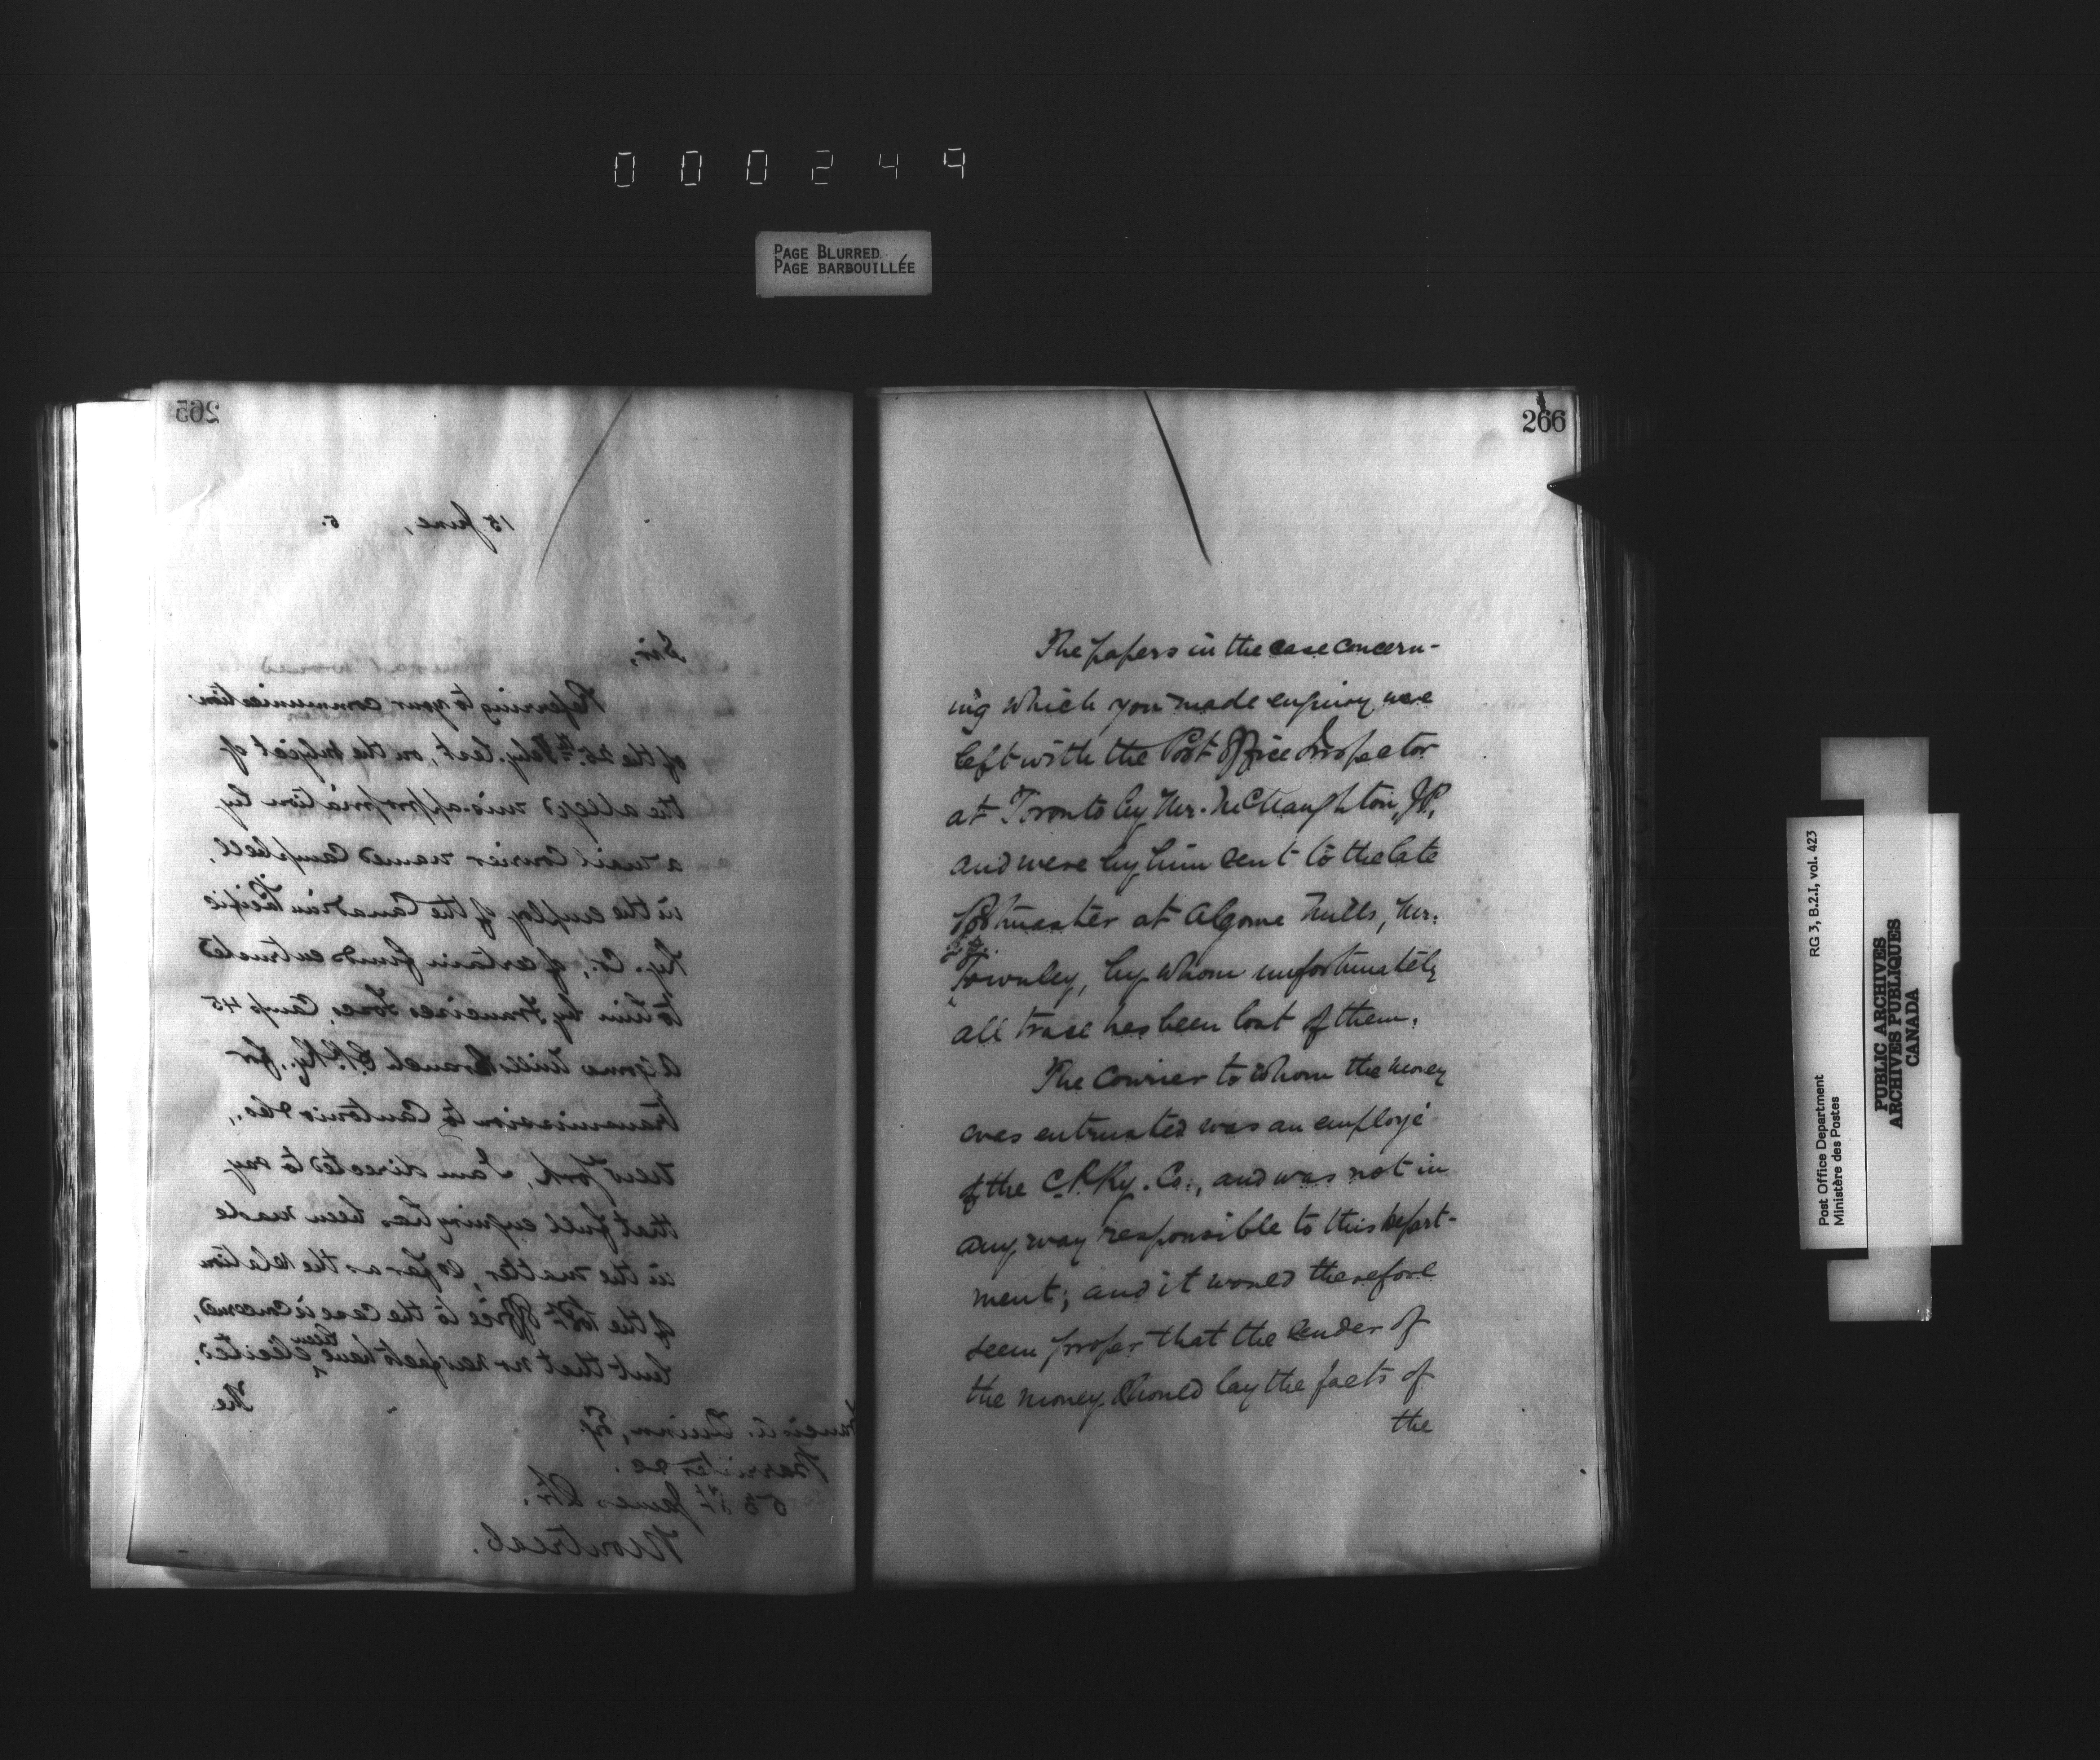 000249
PAGE BLURRED
PAGE BARBOUILLÉE
265
15 June, 5.
Sir,
Referring to your communication
of the 25th Feby. last, on the subject of
the alleged mis-appropriation by
a mail Courier named Campbell,
in the employ of the Canadian Pacific
Ry. Co., of certain funds entrusted
to him by Francisco Camp 45
Algoma Mills Branch C.P.Ry., for
transmission to Cantonio & Co.,
New York, I am directed to say
that full enquiry has been made
in the matter, so far as the relation
of the Post Office to the case is concerned,
but that no new facts have been elicited.
The
Francis A. Quinn, Esq.
Barrister &c.
53 St James Str.
Montreal.
266
The papers in the case concern-
ing which you made enquiry were
left with the Post Office Inspector
at Toronto by Mr. McNaughton, J.P.,
and were by him sent to the late
Postmaster at Algoma Mills, Mr.
Townley, by whom unfortunately
all trace has been lost of them.
The Courier to whom the money
was entrusted was an employé
of the C.P.Ry. Co., and was not in
any way responsible to this Depart-
ment; and it would therefore
seem proper that the sender of
the money should lay the facts of
the
Post Office Department
Ministère des Postes
RG 3, B.2.I, vol. 423
PUBLIC ARCHIVES
ARCHIVES PUBLIQUES
CANADA